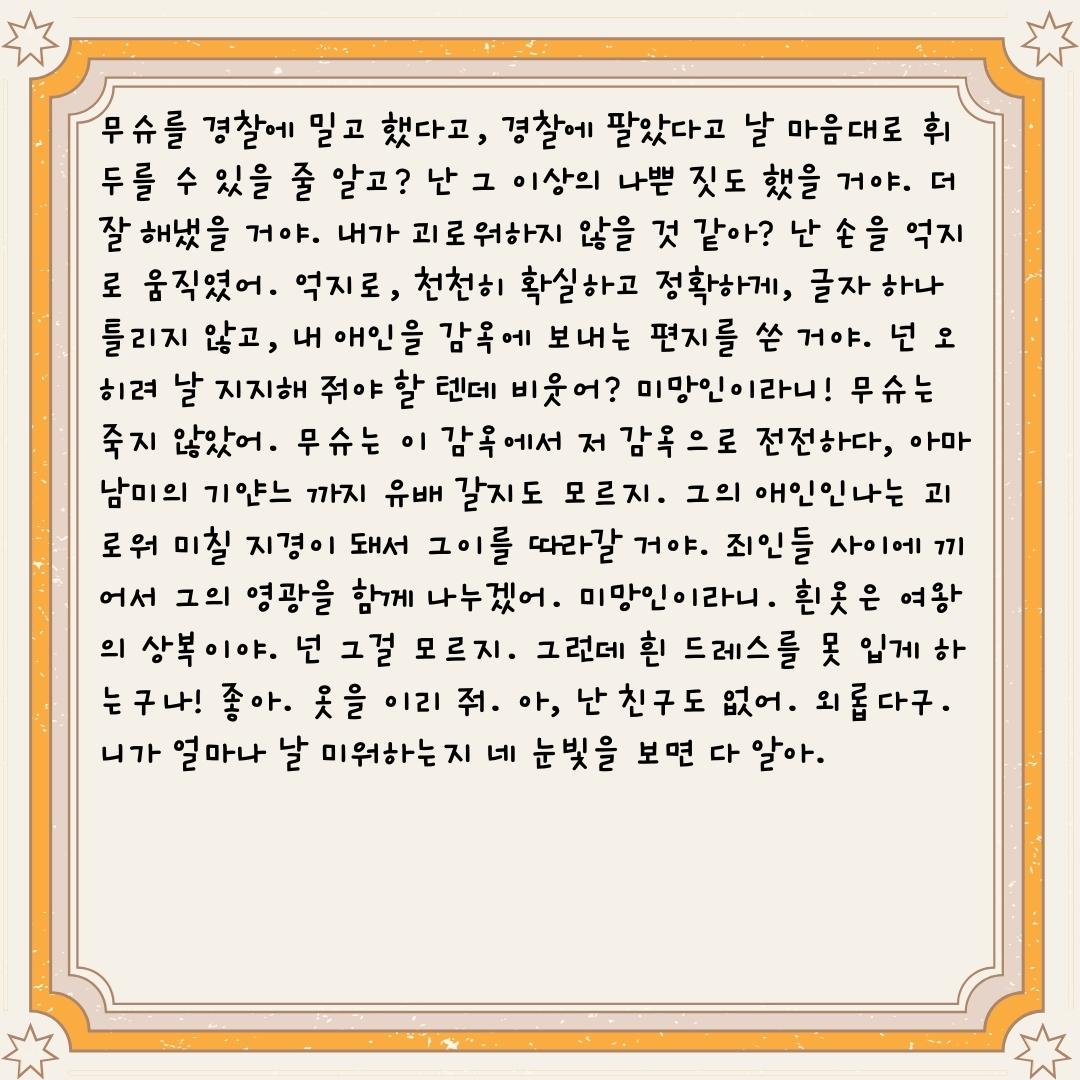 무슈를 경찰에 밀고 했다고, 경찰에 팔았다고 날 마음대로 휘
두를 수 있을 줄 알고? 난 그 이상의 나쁜 짓도 했을 거야. 더
잘 해냈을 거야. 내가 괴로워하지 않을 것 같아? 난 손을 억지
로 움직였어. 억지로, 천천히 확실하고 정확하게, 글자 하나
틀리지 않고, 내 애인을 감옥에 보내는 편지를 쓴 거야. 넌 오
히려 날 지지해 줘야 할 텐데 비웃어? 미망인이라니! 무슈는
죽지 않았어. 무슈는 이 감옥에서 저 감옥으로 전전하다, 아마
남미의 기얀느 까지 유배 갈지도 모르지. 그의 애인인나는 괴
로워 미칠 지경이 돼서 그이를 따라갈 거야. 죄인들 사이에 끼
어서 그의 영광을 함께 나누겠어. 미망인이라니. 흰옷은 여왕
의 상복이야. 넌 그걸 모르지. 그런데 흰 드레스를 못 입게 하
는구나! 좋아. 옷을 이리 줘. 아, 난 친구도 없어. 외롭다구.
니가 얼마나 날 미워하는지 네 눈빛을 보면 다 알아.